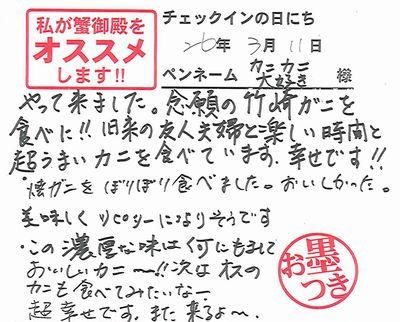 私が蟹御殿を
オススメ
します!!
チェックインの日にち
26年 3月 11日
ペンネーム カニカニ大好き 様
やって来ました。念願の竹崎ガニを
食べに!!旧来の友人夫婦と楽しい時間と
超うまいカニを食べています。幸せです!!
・焼ガニをぼりぼり食べました。おいしかった。
美味しくリピーターになりそうです
・この濃厚な味は何にもまして
おいしいカニ〜!!次はオスの
カニも食べてみたいなー
超幸せです。また来るよ〜。
お墨つき